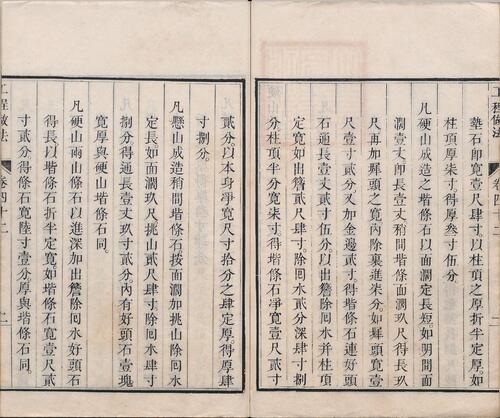 工程做法
卷四十二
墊石卽寬壹尺肆寸以柱頂之厚折半定厚如
柱頂厚柒寸得厚叁寸伍分
凡硬山成造之堦條石以面濶定長短如明間面
濶壹丈卽長壹丈稍間堦條面濶玖尺得長玖
尺再加墀頭之寬內除裏進柒分如墀頭寬壹
尺壹寸貳分又加金邊貳寸得堦條石連好頭
石通長壹丈貳寸伍分以出簷除囘水並柱項
定寬如出簷貳尺肆寸除囘水貳分深肆寸捌
分柱頂半分寬柒寸得堦條石凈寬壹尺貳寸
貳分以本身凈寬尺寸拾分之肆定厚得厚肆
寸捌分
凡懸山成造稍間堦條石按面濶加挑山除囘水
定長如面濶玖尺挑山貳尺肆寸除囘水肆寸
捌分得通長壹丈玖寸貳分內有好頭石壹塊
寬厚與硬山堦條石同
凡硬山兩山條石以進深加出簷除囘水好頭石
得長以堦條石折半定寬如堦條石寬壹尺貳
寸貳分得條石寬陸寸壹分厚與堦條石同
工程做法
卷四十二
二